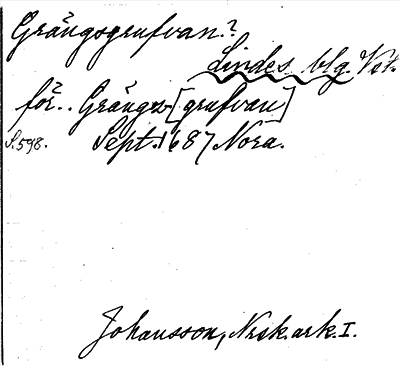 Grängsgrufvan?
Lindes blg. Vstm.
för.. Grängs [grufvan]
S. 598. Sept. 1687 Nora.
Johansson, Nrsk. ark. I.